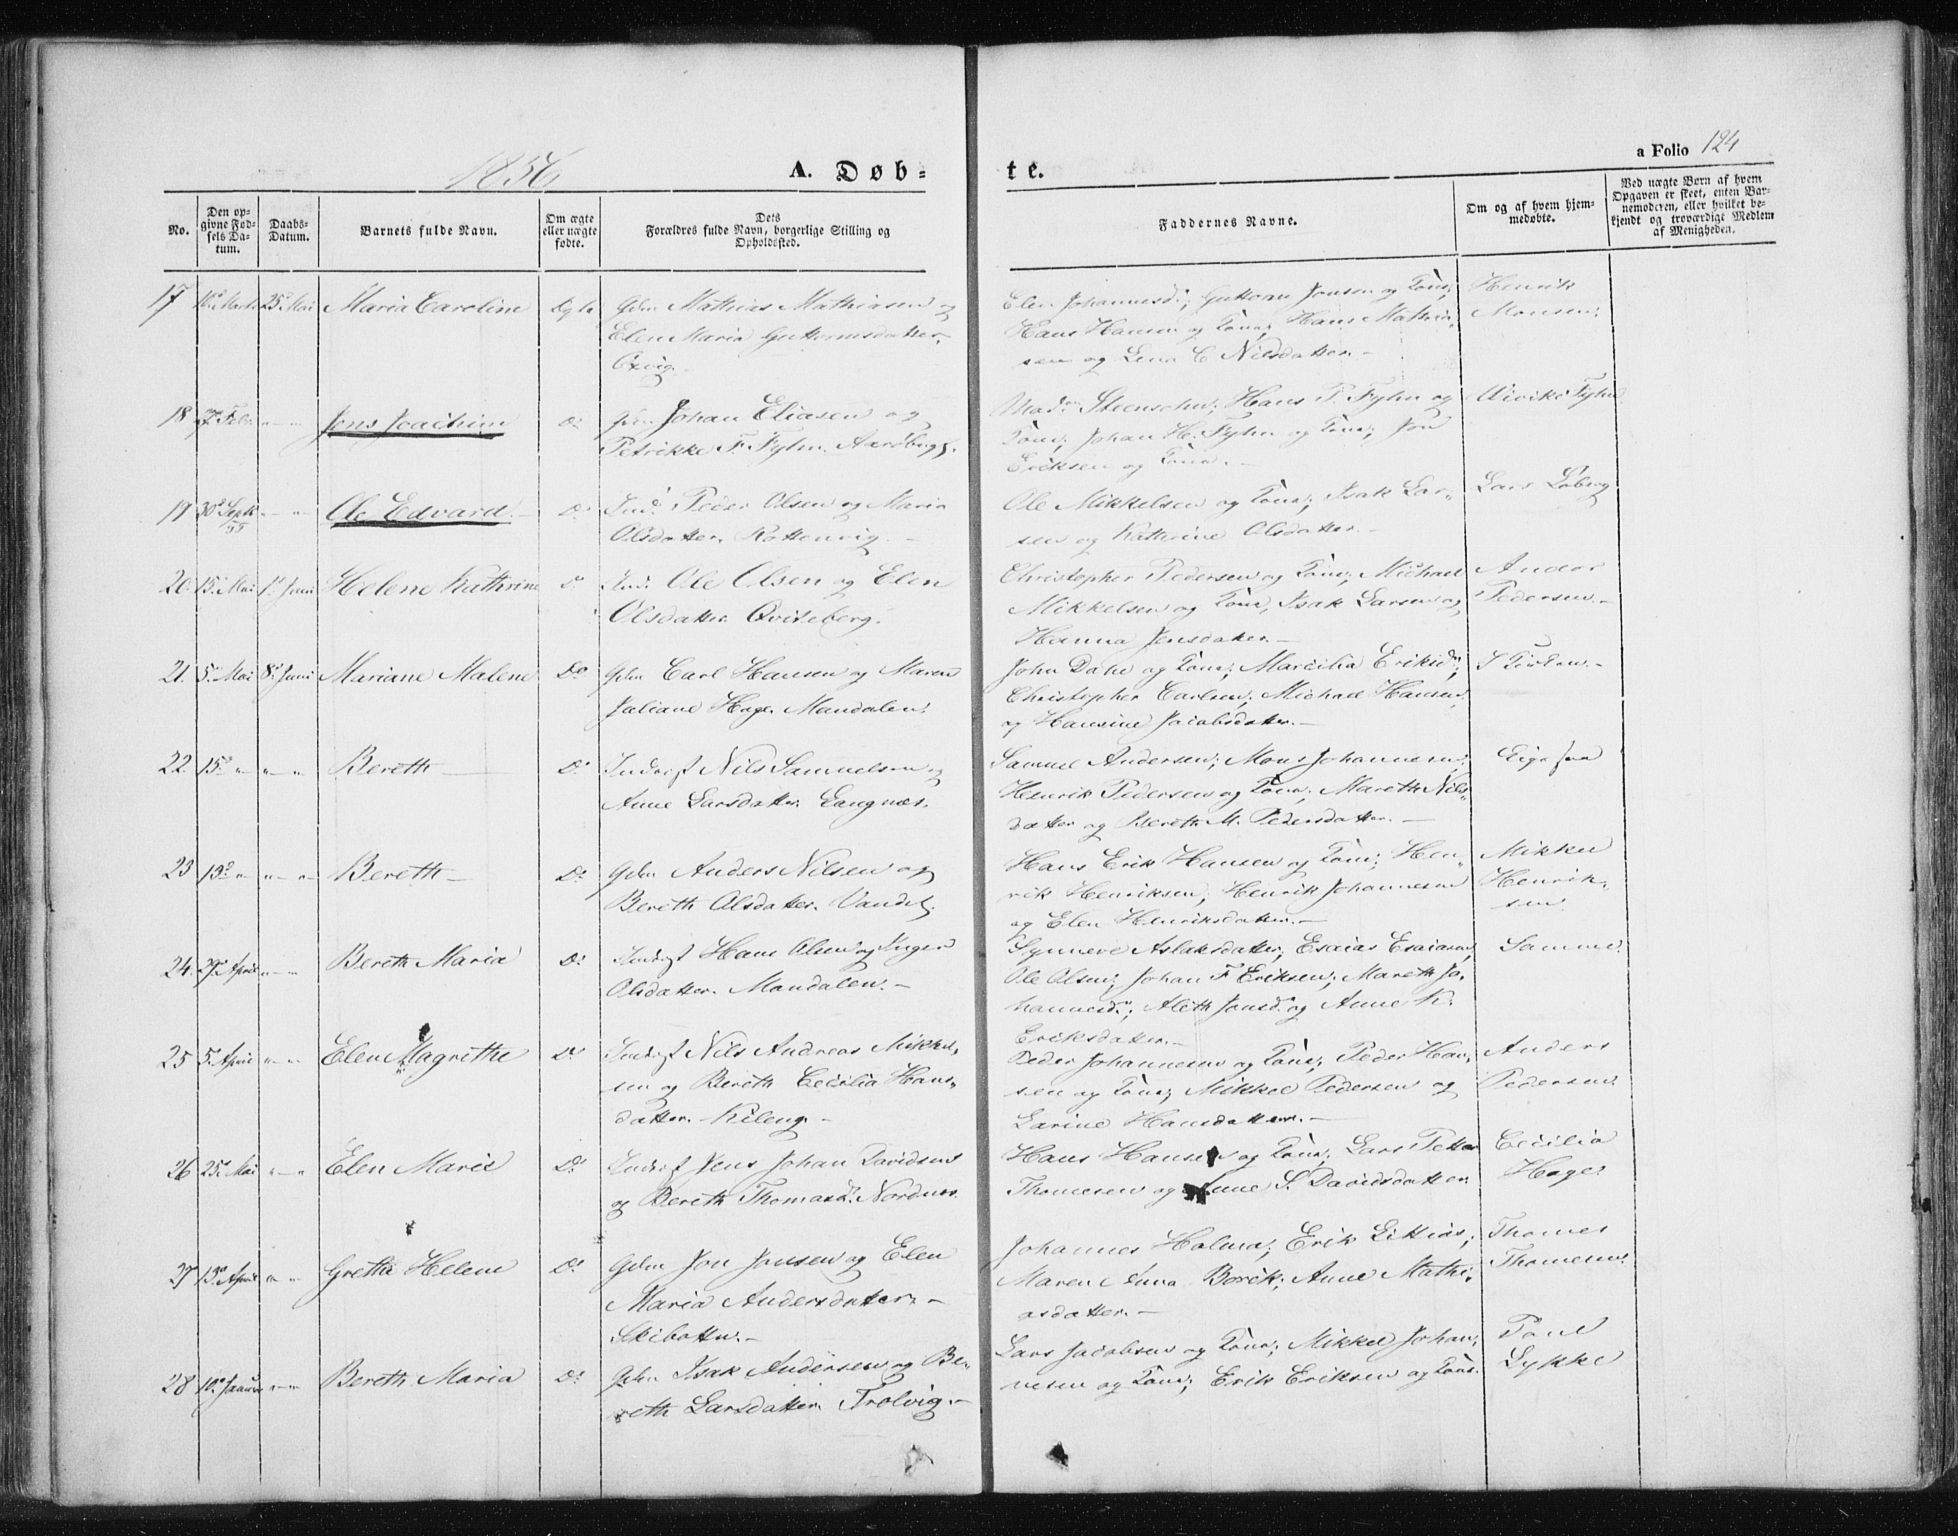 1856
A. Døb-
te.
a Folio 124
No.
Den op-
givne Fød-
sels Da-
tum.
Daabs-
Datum.
Barnets fulde Navn.
Om ægte
eller uægte
fødte.
Dets
Forældres fulde Navn, borgerlige Stilling og
Opholdssted.
Faddernes Navne.
Om og af hvem hjem-
medøbte.
Ved uægte Børn af hvem
Opgaven er skeet, enten Bar-
nemoderen, eller hvilket be-
kjendt og troværdigt Medlem
af Menigheden.
17 25d Mai Maria Caroline Ægte Gdm Mathias Mathiasen og
Elen Maria Guttormsdatter
Elen Johannesd; Guttorm Jonsen og Kone;
Hans Hansen og Kone; Hans Mathia-
sen og Lena C Nilsdatter.-
Henrik
Monsen.
18 7 Febr " " Jens Joachim Do Gdm Johan Eliasen og
Petrikke F. Fyhn.
Hans P. Fyhn og
Kone; Johan H. Fyhn og Kone; Jon
Eriksen og Kone.-
Ulrikke Fyhn
19 30d Sept " " Ole Edvard.- Do Ind. Peder Olsen og Maria
55
Olsdatter.
Ole Mikkelsen og Kone; Isak Lar-
sen og Kathrine Olsdatter.-
Lars Løberg
20. 15d Mai 1d Juni Helene Kathrine Do Ind. Ole Olsen og Elen
Olsdatter. Qviteberg.
Christopher Pedersen og Kone; Michael
Mikkelsen og Kone, Isak Larsen og
Hanna Jensdatter.-
Andor
Pedersen.-
21. 5d Mai 8d Juni Mariane Malene Do Gdm Carl Hansen og Maren
Juliane Hage. Mandalen.
John Dahl og Kone; Marcilia Eriksdr;
Christopher Carlsen; Michael Hansen,
og Hansine Jacobsdatter.-
22. 15d " " " Bereth Do Indrgst Nils Samuelsen og
Anne Larsdatter. Langnæs.
Samuel Andersen; Mons Johannesen;
Henrik Pedersen og Kone; Mareth Nils-
datter og Bereth M. Pedersdatter.-
23 13d " " " Bereth Do Gdm Anders Nilsen og
Bereth Olsdatter.
Hans Erik Hansen og Kone; Hen-
rik Henriksen; Henrik Johannesen
og Elen Henriksdatter.-
Mikkel
Henrik-
sen
24. 29d April " " Bereth Maria Do Indrgst Hans Olsen og Inger
Olsdatter. Mandalen.-
Synneve Aslaksdatter; Esaias Esaiasen,
Ole Olsen; Johan F Eriksen; Mareth Jo-
hannesdr; Aleth Jonsd. og Anne K.
Eriksdatter.-
Samme.
25 5. April " " Elen Magrethe Do Indrgst Nils Andreas Mikkel-
sen og Bereth Cecilia Hans-
datter. Kileng.-
Peder Johannesen og Kone; Peder Han-
sen og Kone; Mikkel Pedersen og
Larine Hansdatter.-
Anders
Pedersen
26 25d Mai " " Elen Marie Do Indrgst Jens Johan Davidsen
og Bereth Thomasdr. Nordnes.
Hans Hansen og Kone; Lars Petter
Thomesen og Anne S. Davidsdatter
Cecilia
Hage.
27 13d April " " Gretha Helene Do Gdm Jon Jonsen og Elen
Maria Andersdatter.-
Skibotten.-
Johannes Holma; Erik Littias;
Maren Anna Borck; Anne Mathi-
asdatter.-
Thomes
Thomesen.
28 10d Januar " " Bereth Maria Do Gdm Isak Andersen og Be-
reth Larsdatter. Trolvig.-
Lars Jacobsen og Kone; Mikkel Johan-
nesen og Kone; Erik Eriksen og Kone.
Povel
Lykke